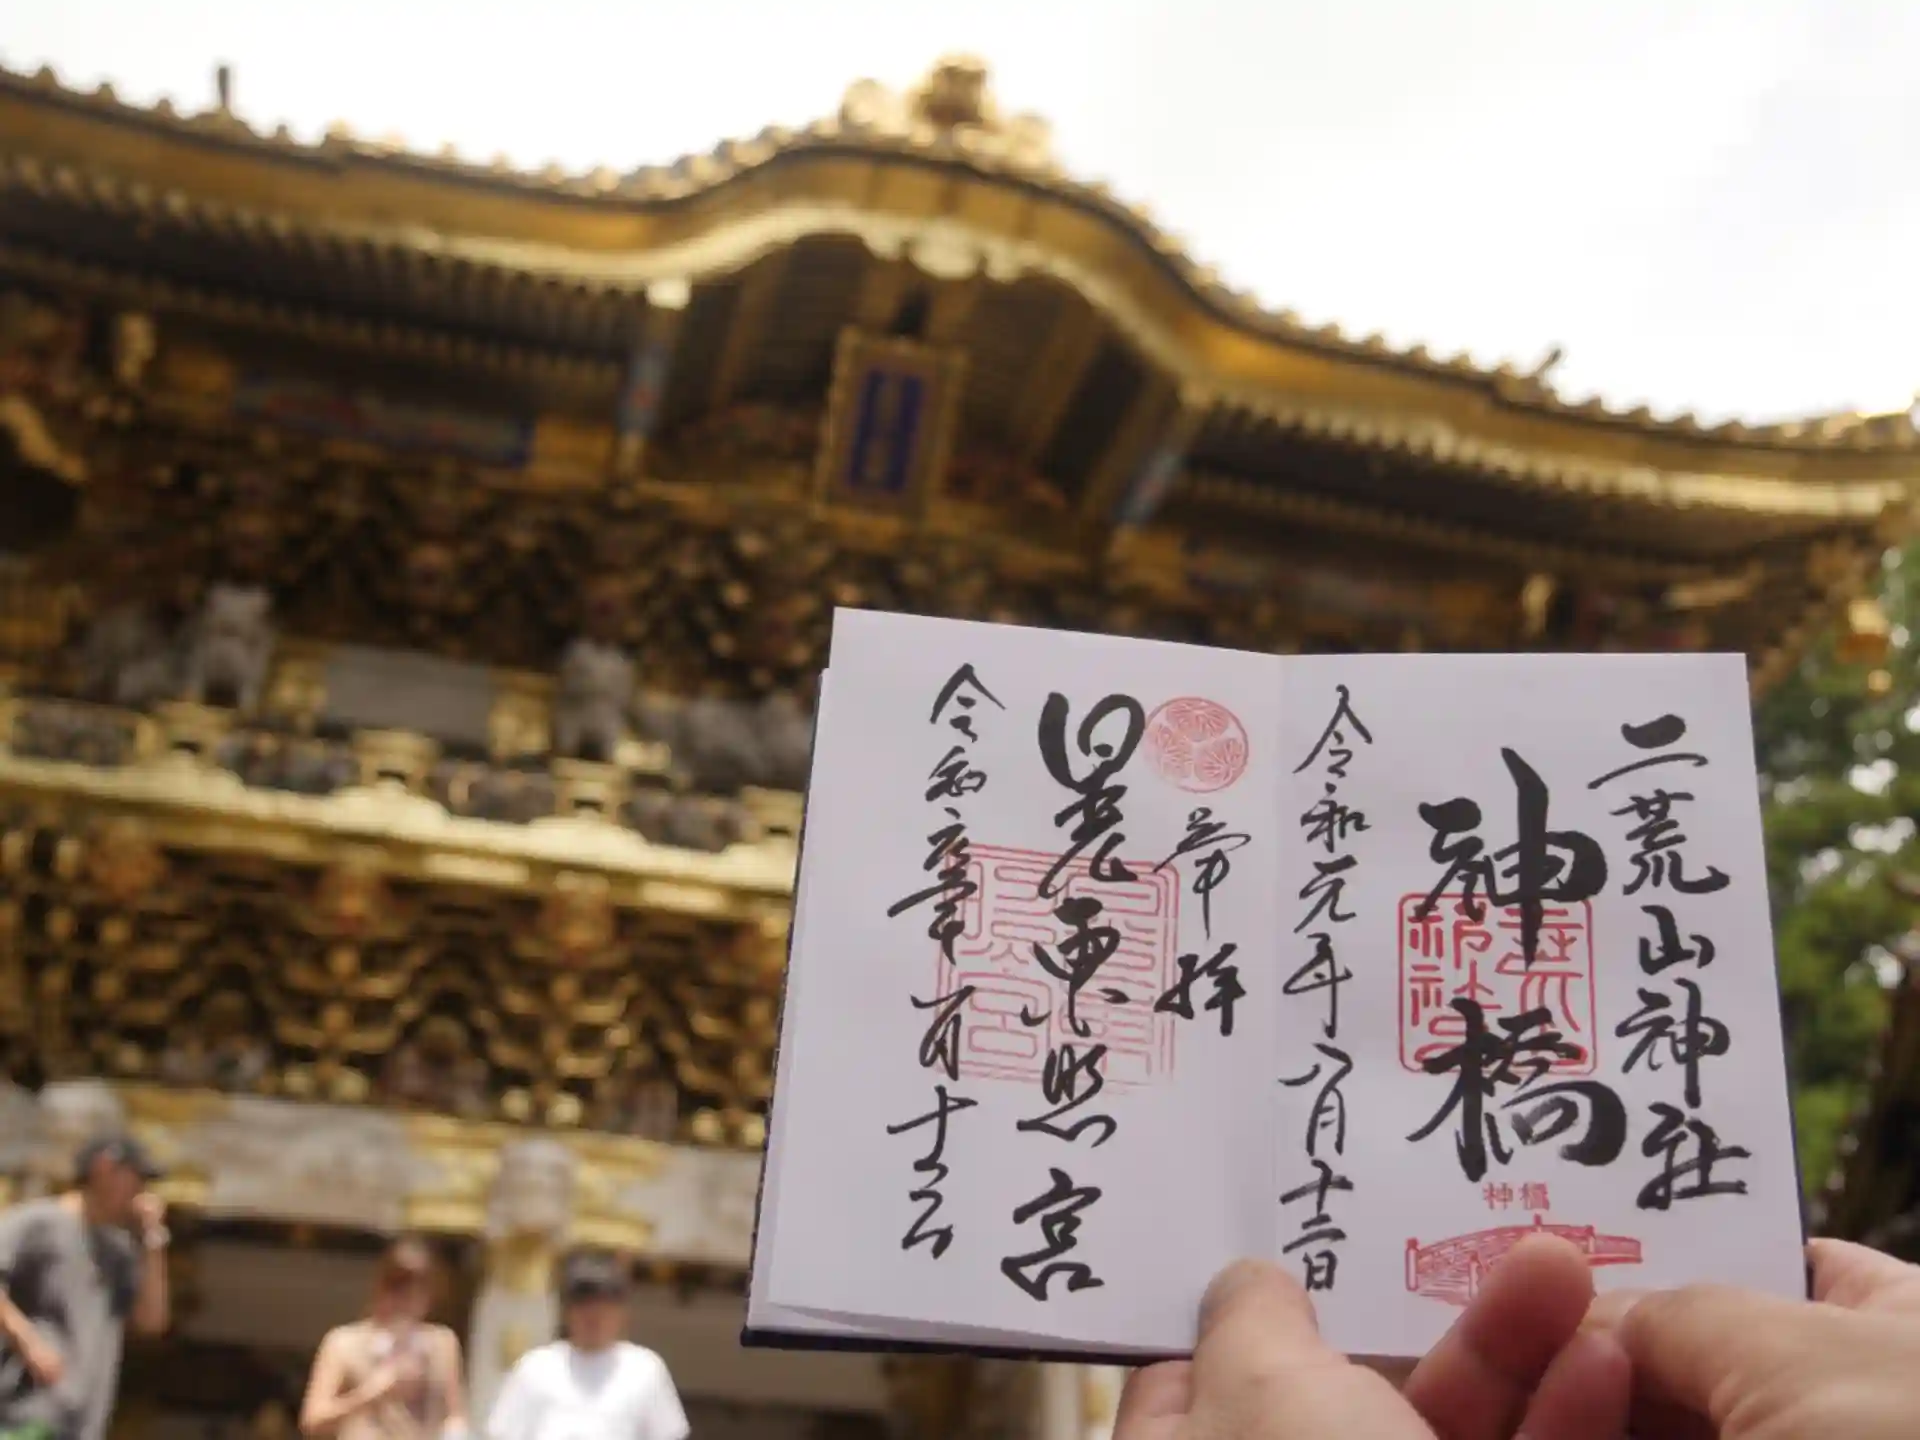 二荒山神社
神橋
神橋
令和元年八月十二日
奉拝
日光東照宮
令和元年八月十二日